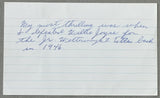 My most thrilling was when
I defeated Willie Joyce for
the Jr. Welterweight title back
in 1946